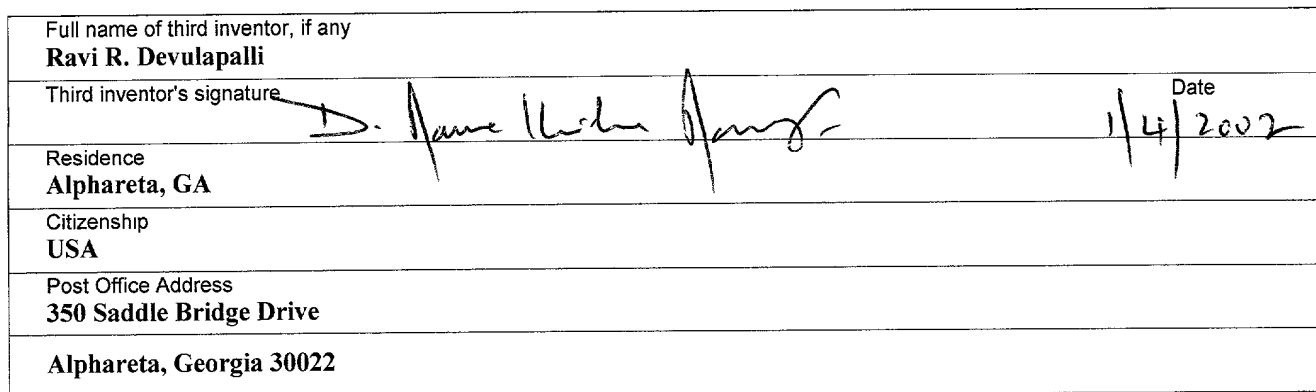 Full name of third inventor, if any
Ravi R. Devulapalli
Third inventor's signature D. Date
1/4/2002
Residence
Alphareta, GA
Citizenship
USA
Post Office Address
350 Saddle Bridge Drive
Alphareta, Georgia 30022